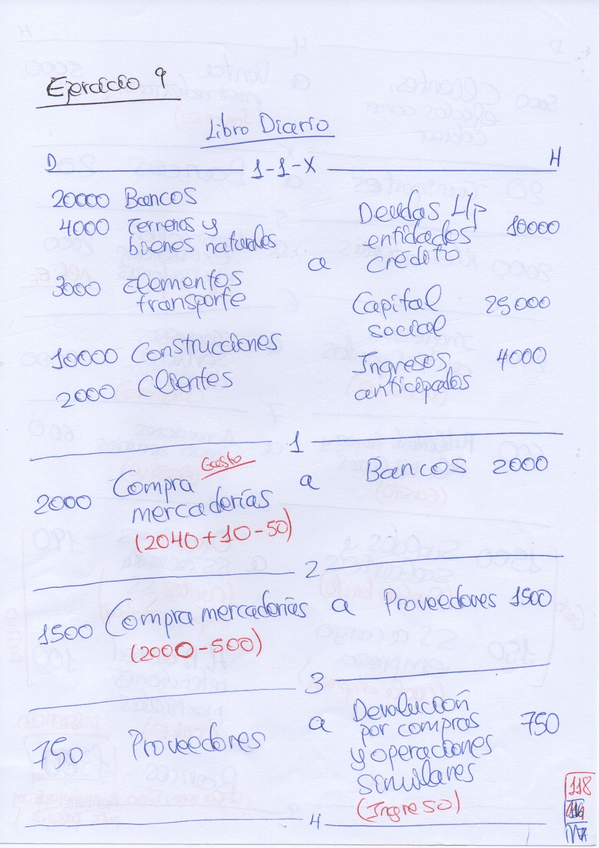 Ejercicio 9
Libro Diario
D 1-1-X H
20000 Bancos
4000 Terrenos y
bienes naturales
3000 Elementos
transporte
10000 Construcciones
2000 Clientes
a
Deudas l/p
entidades 10000
crédito
Capital 25000
social
Ingresos 4000
anticipados
1
Gasto
2000 Compra a Bancos 2000
mercaderías
(2040+10-50)
2
1500 Compra mercaderías a Proveedores 1500
(2000-500)
3
750 Proveedores a Devolución 750
por compras
y operaciones
similares
(Ingreso)
4
118